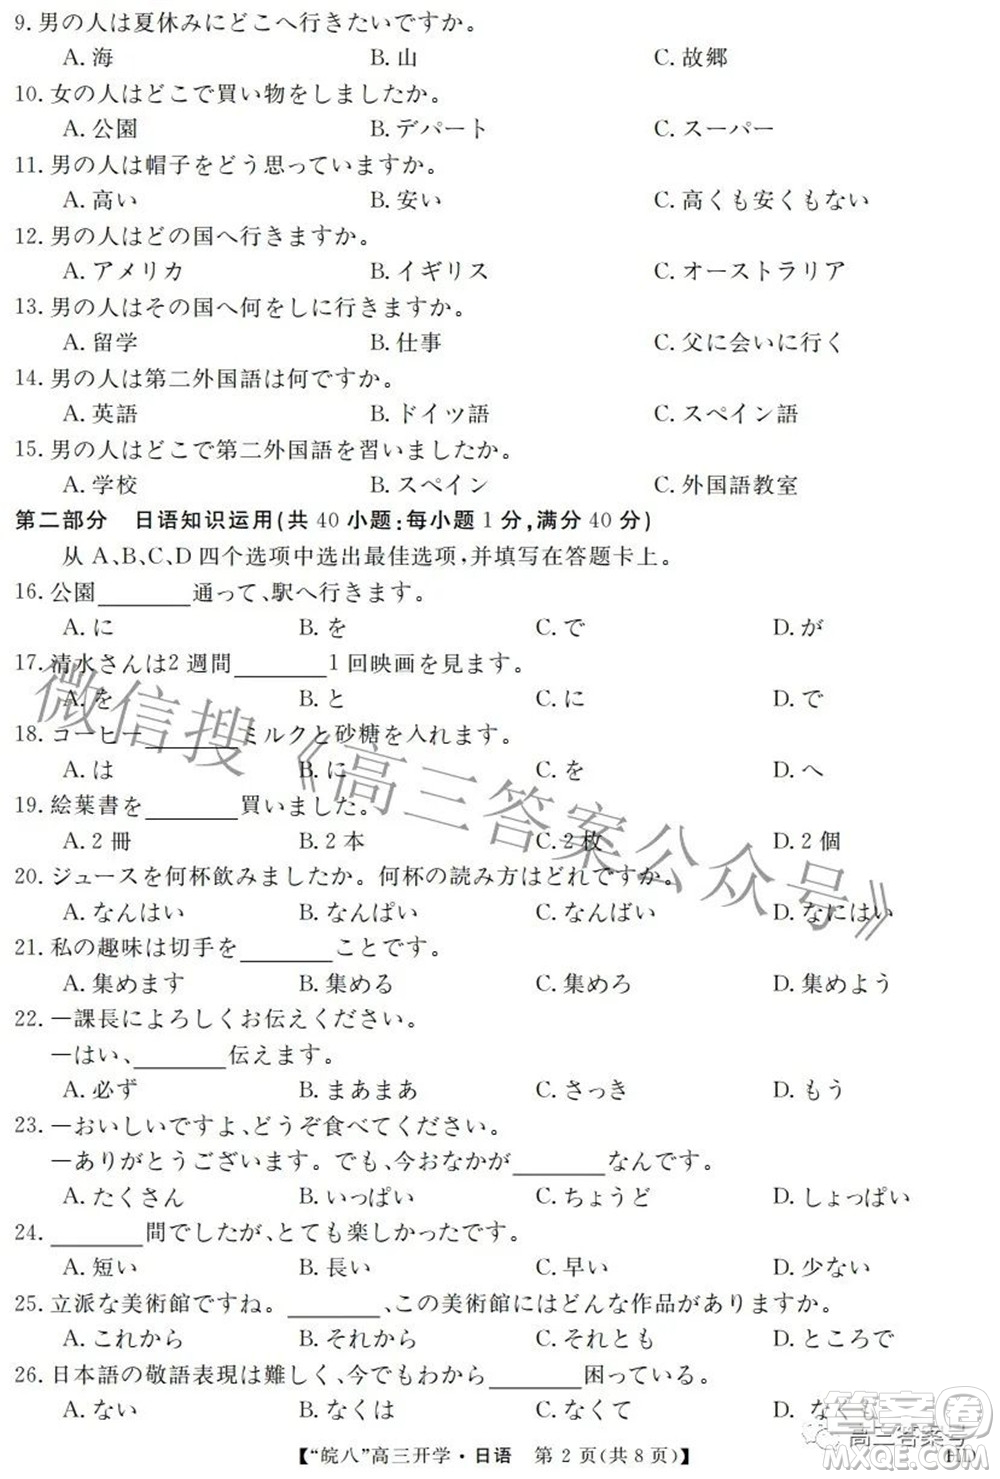 9. 男の人は夏休みにどこへ行きたいですか。
A. 海 B. 山 C. 故郷
10. 女の人はどこで買い物をしましたか。
A. 公園 B. デパート C. スーパー
11. 男の人は帽子をどう思っていますか。
A. 高い B. 安い C. 高くも安くもない
12. 男の人はどの国へ行きますか。
A. アメリカ B. イギリス C. オーストラリア
13. 男の人はその国へ何をしに行きますか。
A. 留学 B. 仕事 C. 父に会いに行く
14. 男の人は第二外国語は何ですか。
A. 英語 B. ドイツ語 C. スペイン語
15. 男の人はどこで第二外国語を習いましたか。
A. 学校 B. スペイン C. 外国語教室
第二部分 日语知识运用(共 40 小题:每小题 1 分,满分 40 分)
从 A、B、C、D 四个选项中选出最佳选项,并填写在答题卡上。
16. 公園________通って、駅へ行きます。
A. に B. を C. で D. が
17. 清水さんは2 週間________1 回映画を見ます。
A. を B. と C. に D. で
18. コーヒー________ミルクと砂糖を入れます。
A. は B. に C. を D. へ
19. 絵葉書を________買いました。
A. 2 冊 B. 2 本 C. 2 枚 D. 2 個
20. ジュースを何杯飲みましたか。何杯の読み方はどれですか。
A. なんはい B. なんぱい C. なんばい D. なにはい
21. 私の趣味は切手を________ことです。
A. 集めます B. 集める C. 集めろ D. 集めよう
22. ー課長によろしくお伝えください。
ーはい、________伝えます。
A. 必ず B. まあまあ C. さっき D. もう
23. ーおいしいですよ、どうぞ食べてください。
ーありがとうございます。でも、今おなかが________なんです。
A. たくさん B. いっぱい C. ちょうど D. しょっぱい
24. ________間でしたが、とても楽しかったです。
A. 短い B. 長い C. 早い D. 少ない
25. 立派な美術館ですね。________、この美術館にはどんな作品がありますか。
A. これから B. それから C. それとも D. ところで
26. 日本語の敬語表現は難しく、今でもわから________困っている。
A. ない B. なくは C. なくて D. なくた
【“皖八”高三开学·日语 第 2 页(共 8 页)】 HD
微信搜《高三答案公众号》
高三答案号
答案圈
MXQE.COM